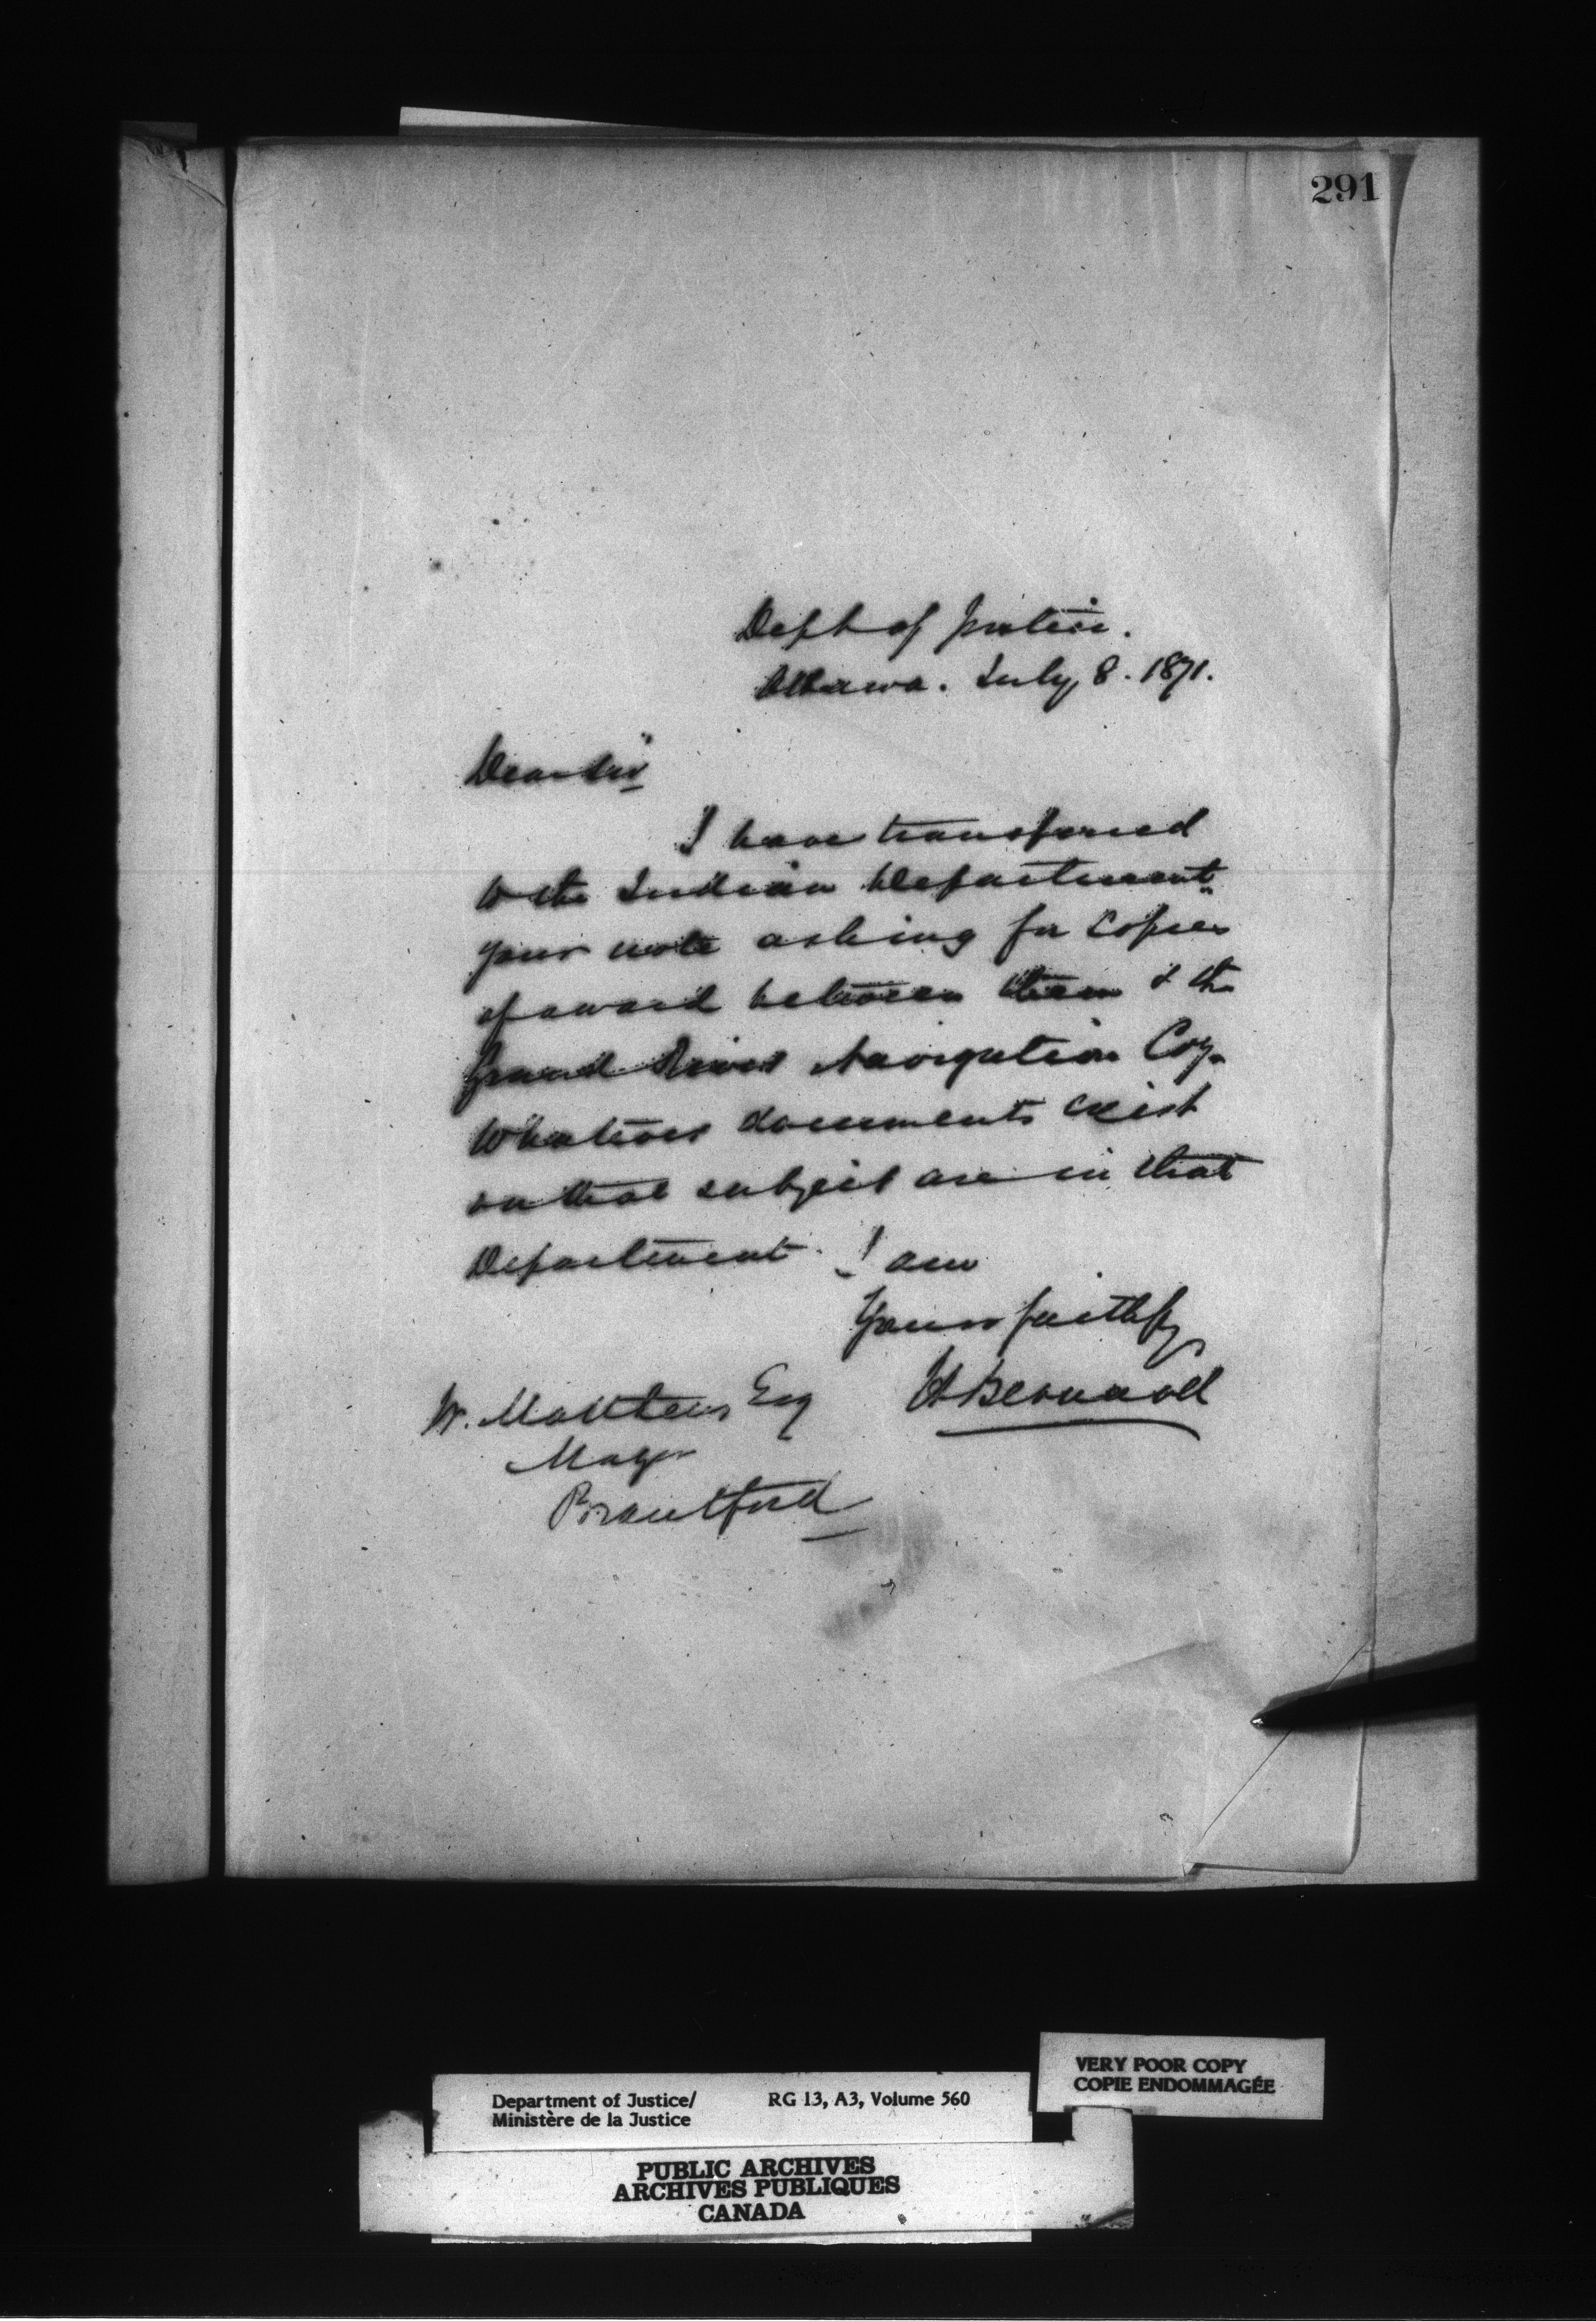 291
Dept of Justice.
Ottawa. July 8. 1871.
Dear Sir
I have transferred
to the Indian Department
your note asking for copies
of award between them & the
Grand River Navigation Coy.
Whatever documents exist
on that subject are in that
Department. I am
Yours faithfy
H Bernard
W. Matthews Esq
Mayor
Brantford
VERY POOR COPY
COPIE ENDOMMAGÉE
Department of Justice/ RG 13, A3, Volume 560
Ministère de la Justice
PUBLIC ARCHIVES
ARCHIVES PUBLIQUES
CANADA